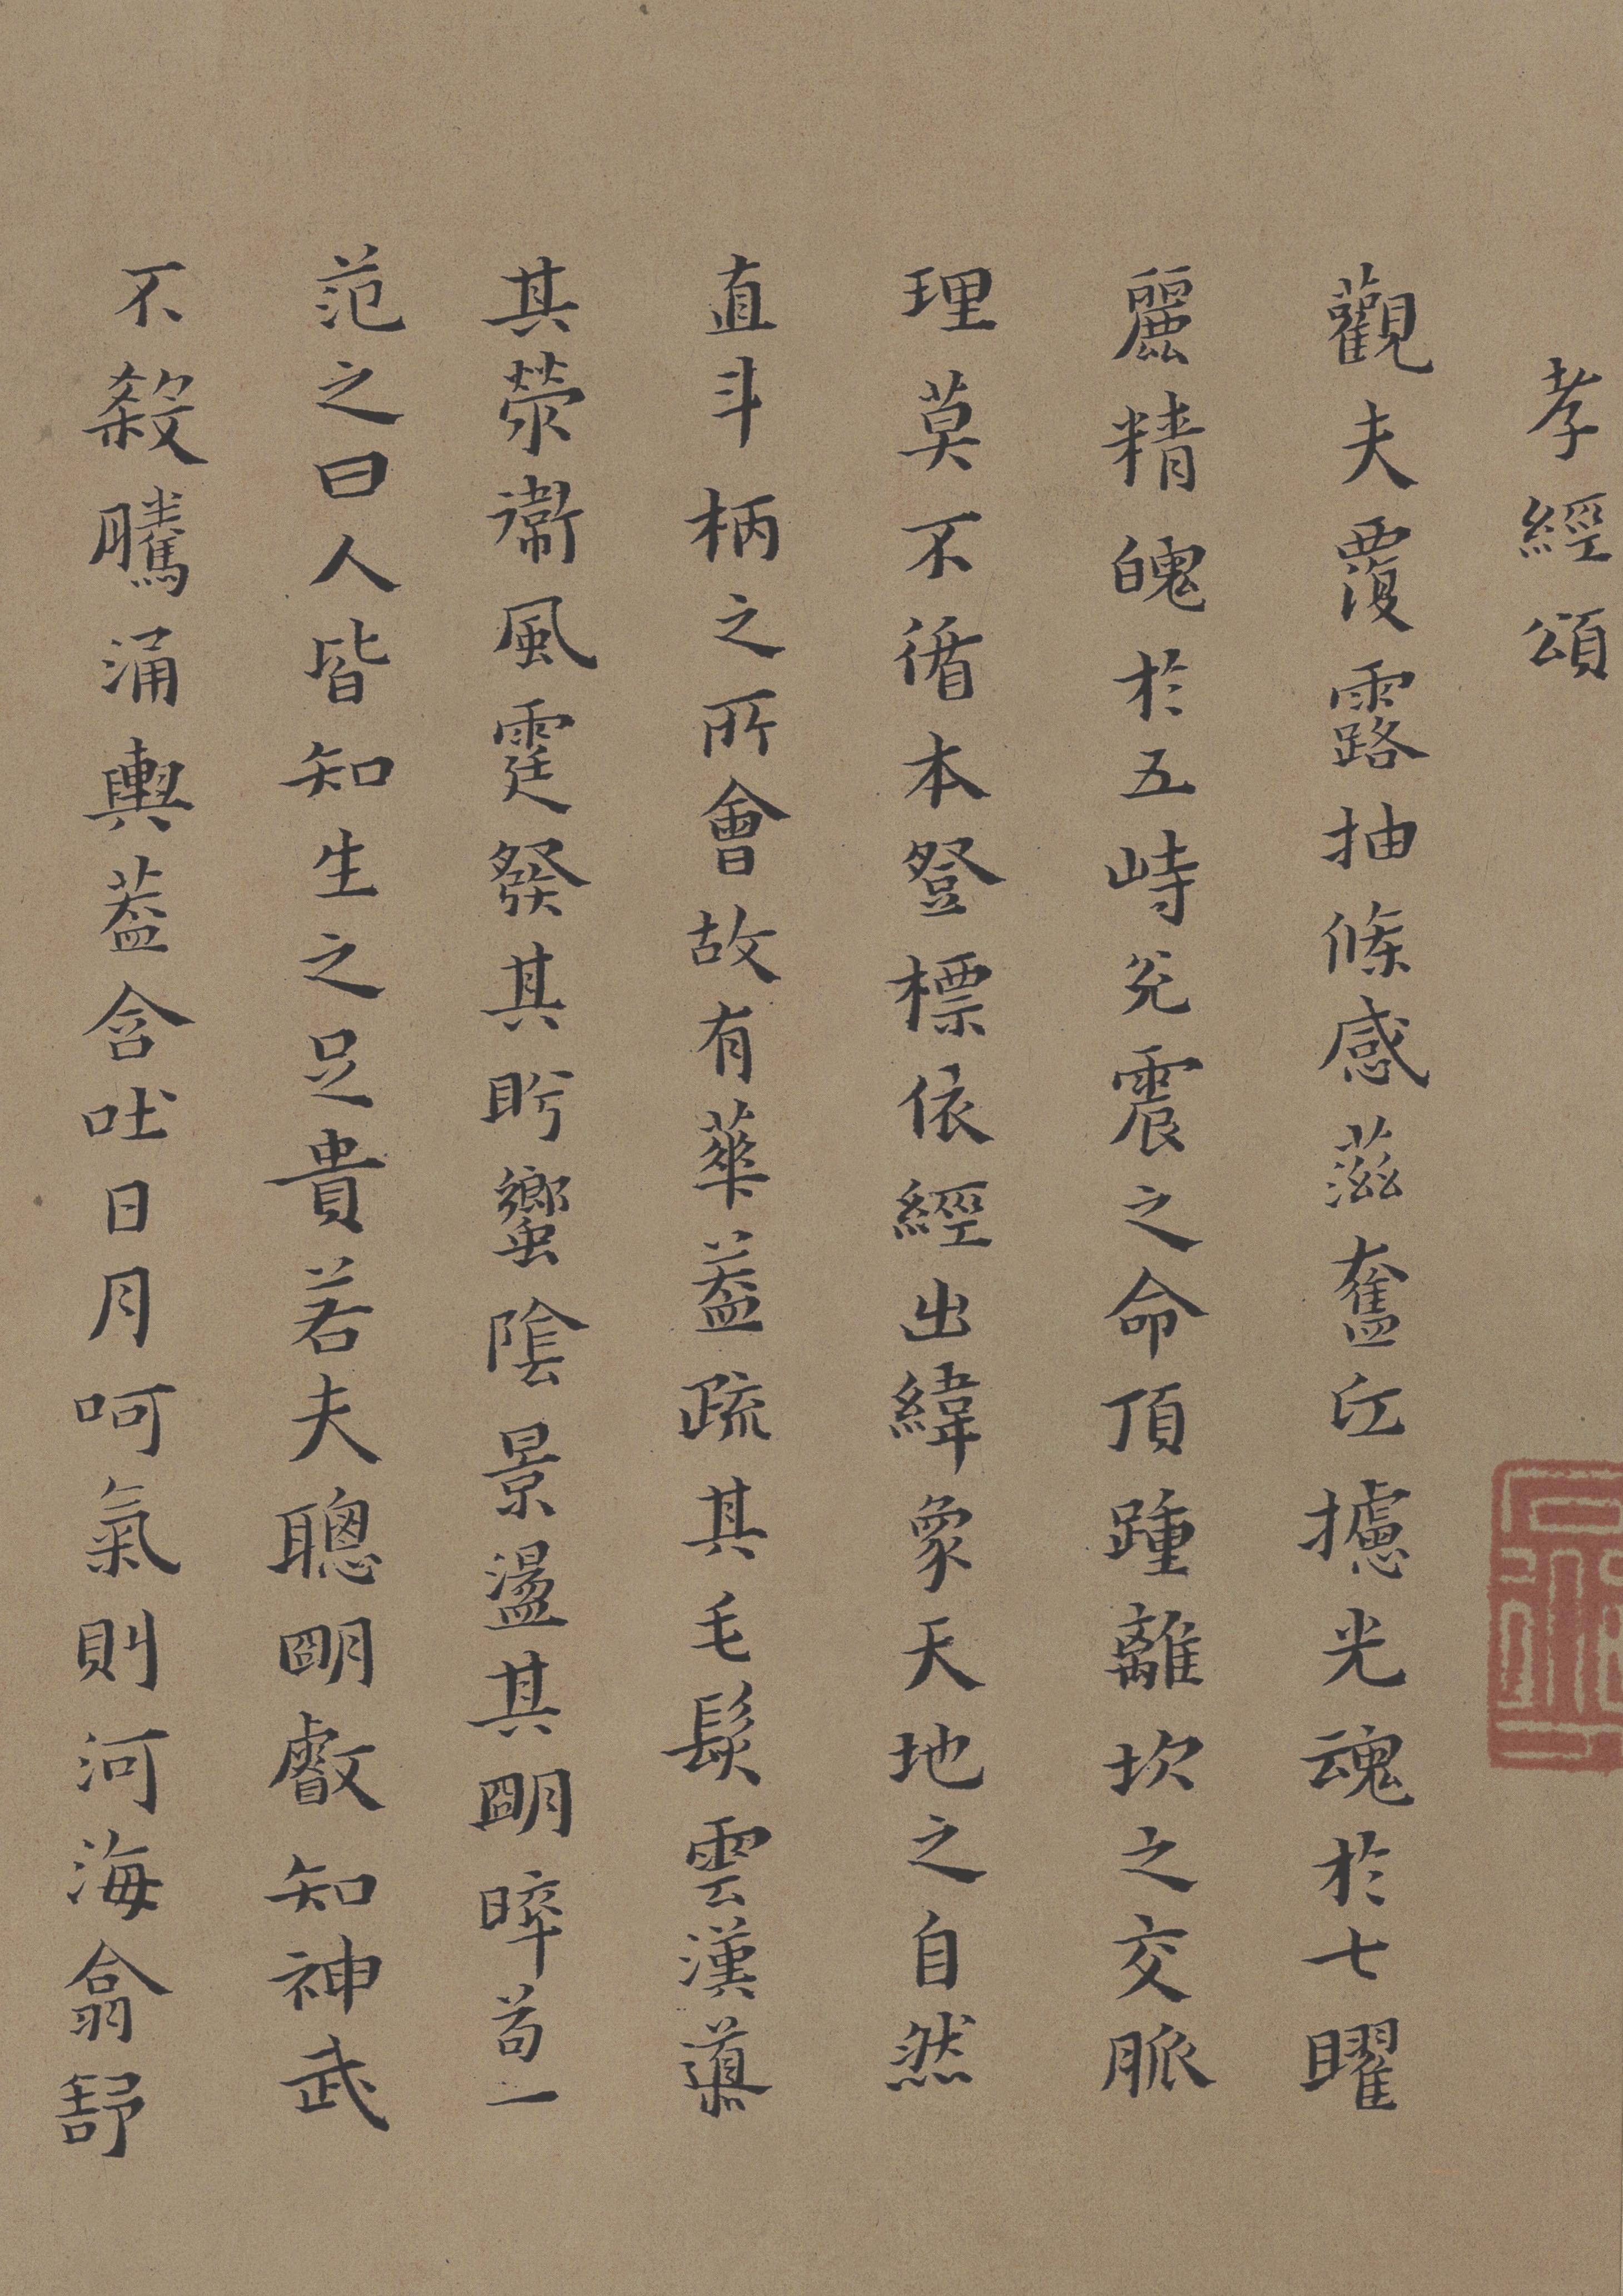 孝經頌
觀夫覆露抽條感滋奮丘攄光魂於七曜
麗精魄於五峙兊震之命頂踵離坎之交脈
理莫不循本登標依經出緯象天地之自然
直斗柄之所會故有華蓋疏其毛髮雲漢導
其滎衛風霆發其肹蠁陰景盪其朙晬苟一
范之曰人皆知生之足貴若夫聰朙叡知神武
不殺騰涌輿蓋含吐日月呵氣則河海翕舒